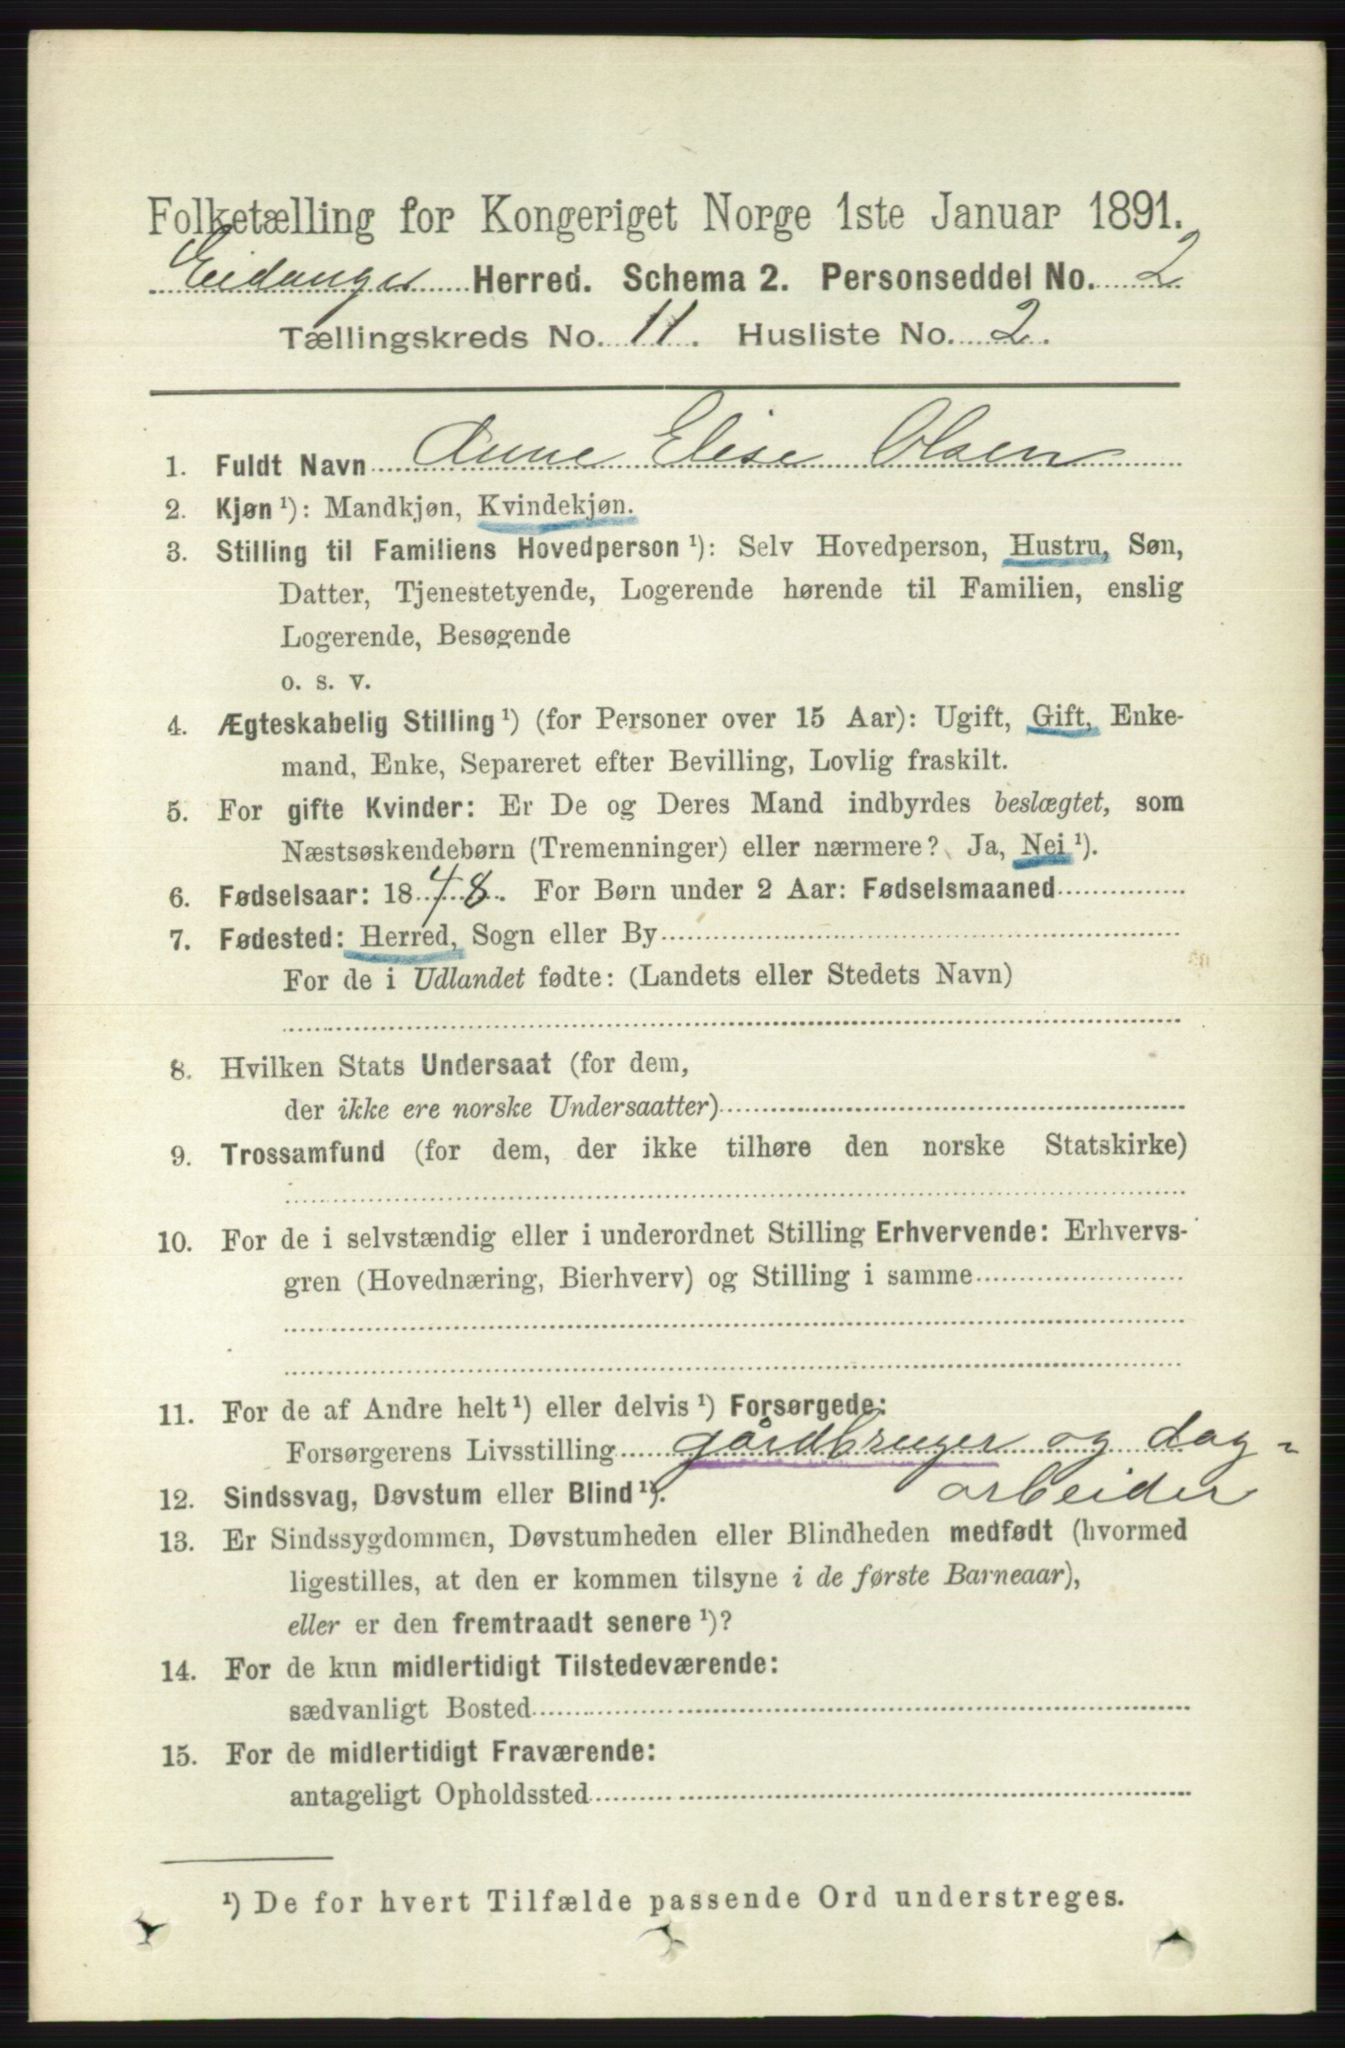 Folketælling for Kongeriget Norge 1ste Januar 1891.
Eidanger Herred. Schema 2. Personseddel No. 2
Tællingskreds No. 11. Husliste No. 2.
1. Fuldt Navn Anne Elise Olsen
2. Kjøn ¹): Mandkjøn, Kvindekjøn.
3. Stilling til Familiens Hovedperson ¹): Selv Hovedperson, Hustru, Søn,
Datter, Tjenestetyende, Logerende hørende til Familien, enslig
Logerende, Besøgende
o. s. v.
4. Ægteskabelig Stilling ¹) (for Personer over 15 Aar): Ugift, Gift, Enke-
mand, Enke, Separeret efter Bevilling, Lovlig fraskilt.
5. For gifte Kvinder: Er De og Deres Mand indbyrdes beslægtet, som
Næstsøskendebørn (Tremenninger) eller nærmere? Ja, Nei ¹).
6. Fødselsaar: 1848. For Børn under 2 Aar: Fødselsmaaned
7. Fødested: Herred, Sogn eller By
For de i Udlandet fødte: (Landets eller Stedets Navn)
8. Hvilken Stats Undersaat (for dem,
der ikke ere norske Undersaatter)
9. Trossamfund (for dem, der ikke tilhøre den norske Statskirke)
10. For de i selvstændig eller i underordnet Stilling Erhvervende: Erhvervs-
gren (Hovednæring, Bierhverv) og Stilling i samme
11. For de af Andre helt ¹) eller delvis ¹) Forsørgede:
Forsørgerens Livsstilling gårdbruger og dag-
arbeider
12. Sindssvag, Døvstum eller Blind ¹).
13. Er Sindssygdommen, Døvstumheden eller Blindheden medfødt (hvormed
ligestilles, at den er kommen tilsyne i de første Barneaar),
eller er den fremtraadt senere ¹)?
14. For de kun midlertidigt Tilstedeværende:
sædvanligt Bosted
15. For de midlertidigt Fraværende:
antageligt Opholdssted
¹) De for hvert Tilfælde passende Ord understreges.